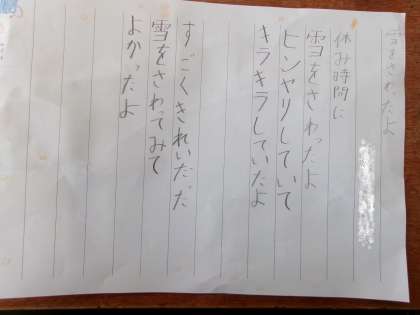 雪をさわったよ
休み時間に
雪をさわったよ
ヒンヤリしていて
キラキラしていたよ
すごくきれいだった
雪をさわってみて
よかったよ